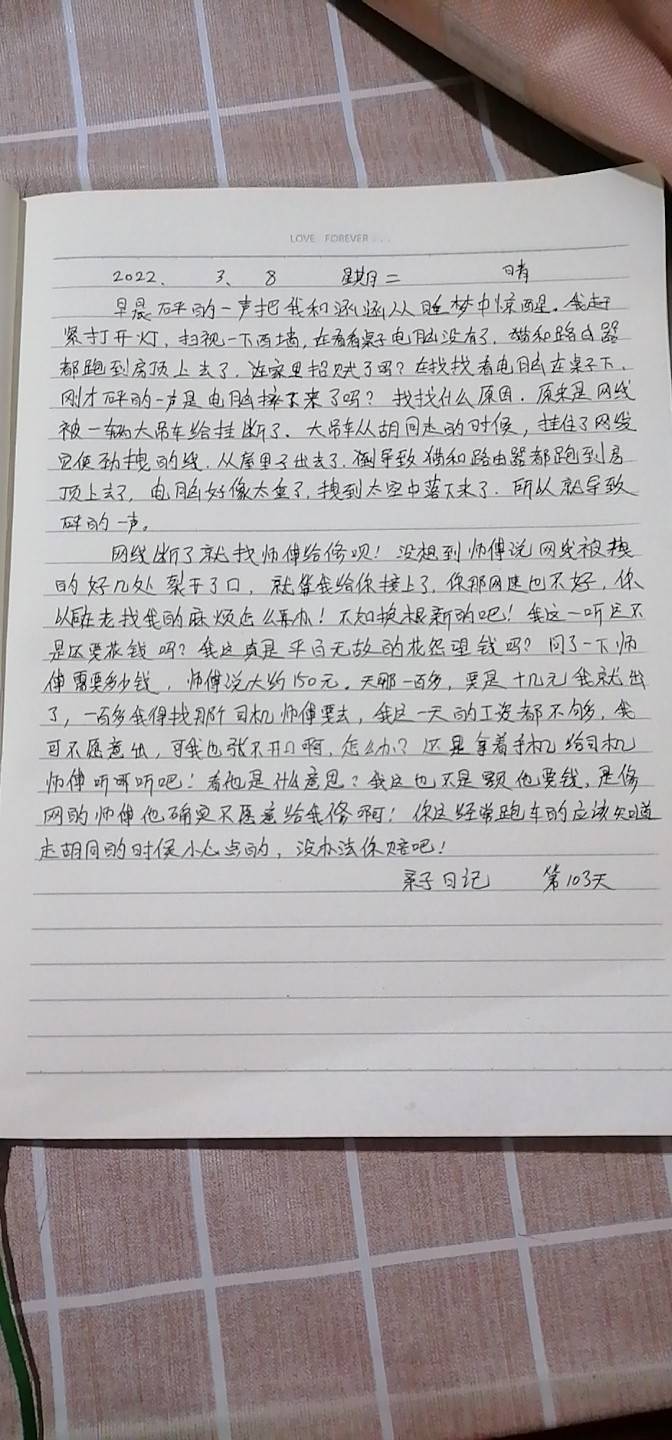 LOVE FOREVER...
2022、 3、 8 星期二 晴
早晨砰的一声把我和涵涵从睡梦中惊醒。我赶
紧打开灯，扫视一下西墙，在看看桌子电脑没有了，猫和路由器
都跑到房顶上去了，这家里招贼了吗？在找找看电脑在桌子下，
刚才砰的一声是电脑摔下来了吗？找找什么原因，原来是网线
被一辆大吊车给挂断了。大吊车从胡同走的时候，挂住了网线
它使劲拽的线，从屋里子出去了，倒导致猫和路由器都跑到房
顶上去了，电脑好像太重了，拽到太空中落下来了，所以就导致
砰的一声。
网线断了就找师傅给修呗！没想到师傅说网线被拽
的好几处裂开了口，就算我给你接上了，你那网速也不好，你
以后在老找我的麻烦怎么再办！不如换根新的吧！我这一听这不
是还要花钱吗？我这真是平白无故的花怨望钱吗？问了一下师
傅需要多少钱，师傅说大约150元。天那一百多，要是十几元我就出
了，一百多我得找那个司机师傅要去，我这一天的工资都不够，我
可不愿意出，可我也张不开口啊，怎么办？还是拿着手机给司机
师傅听听听吧！看他是什么意思？我这也不是额他要钱，是修
网的师傅他确实不愿意给我修啊！你这经常跑车的应该知道
走胡同的时候小心点的，没办法你赔吧！
亲子日记 第103天